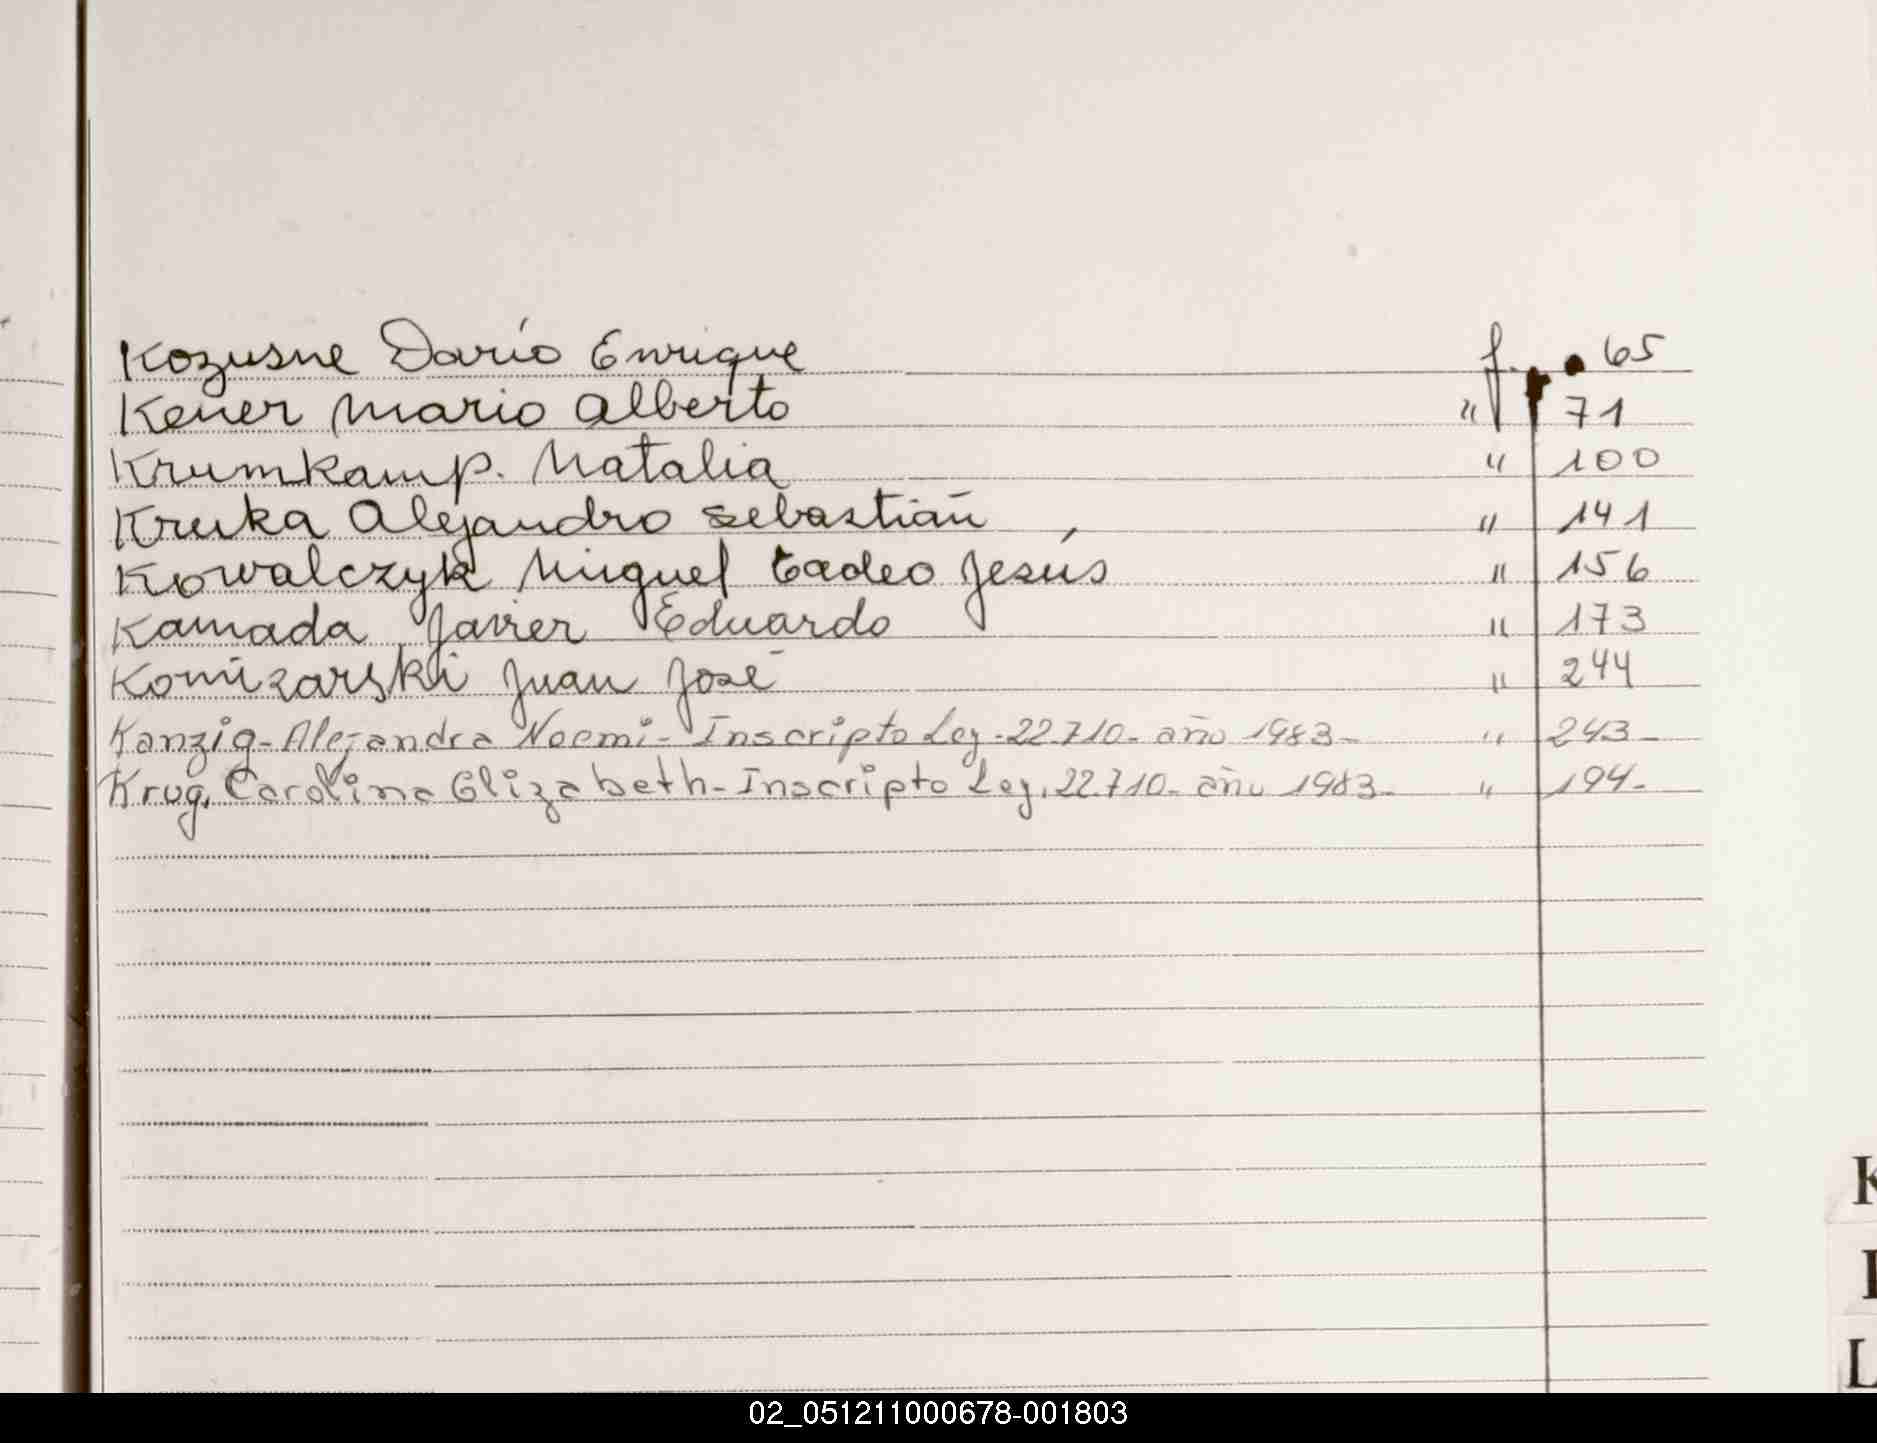 Kozusne Dario Enrique f. 65
Kener Mario Alberto " 71
Krumkamp. Natalia " 100
Kruka Alejandro Sebastián " 141
Kowalczyk Miguel Tadeo Jesús " 156
Kamada Javier Eduardo " 173
Komizarski Juan José " 244
Kanzig - Alejandra Noemi - Inscripto Ley - 22.710 - año 1983 - " 243 -
Krug, Carolina Elizabeth - Inscripto Ley. 22.710 - año 1983 - " 194 -
K
L
02_051211000678-001803